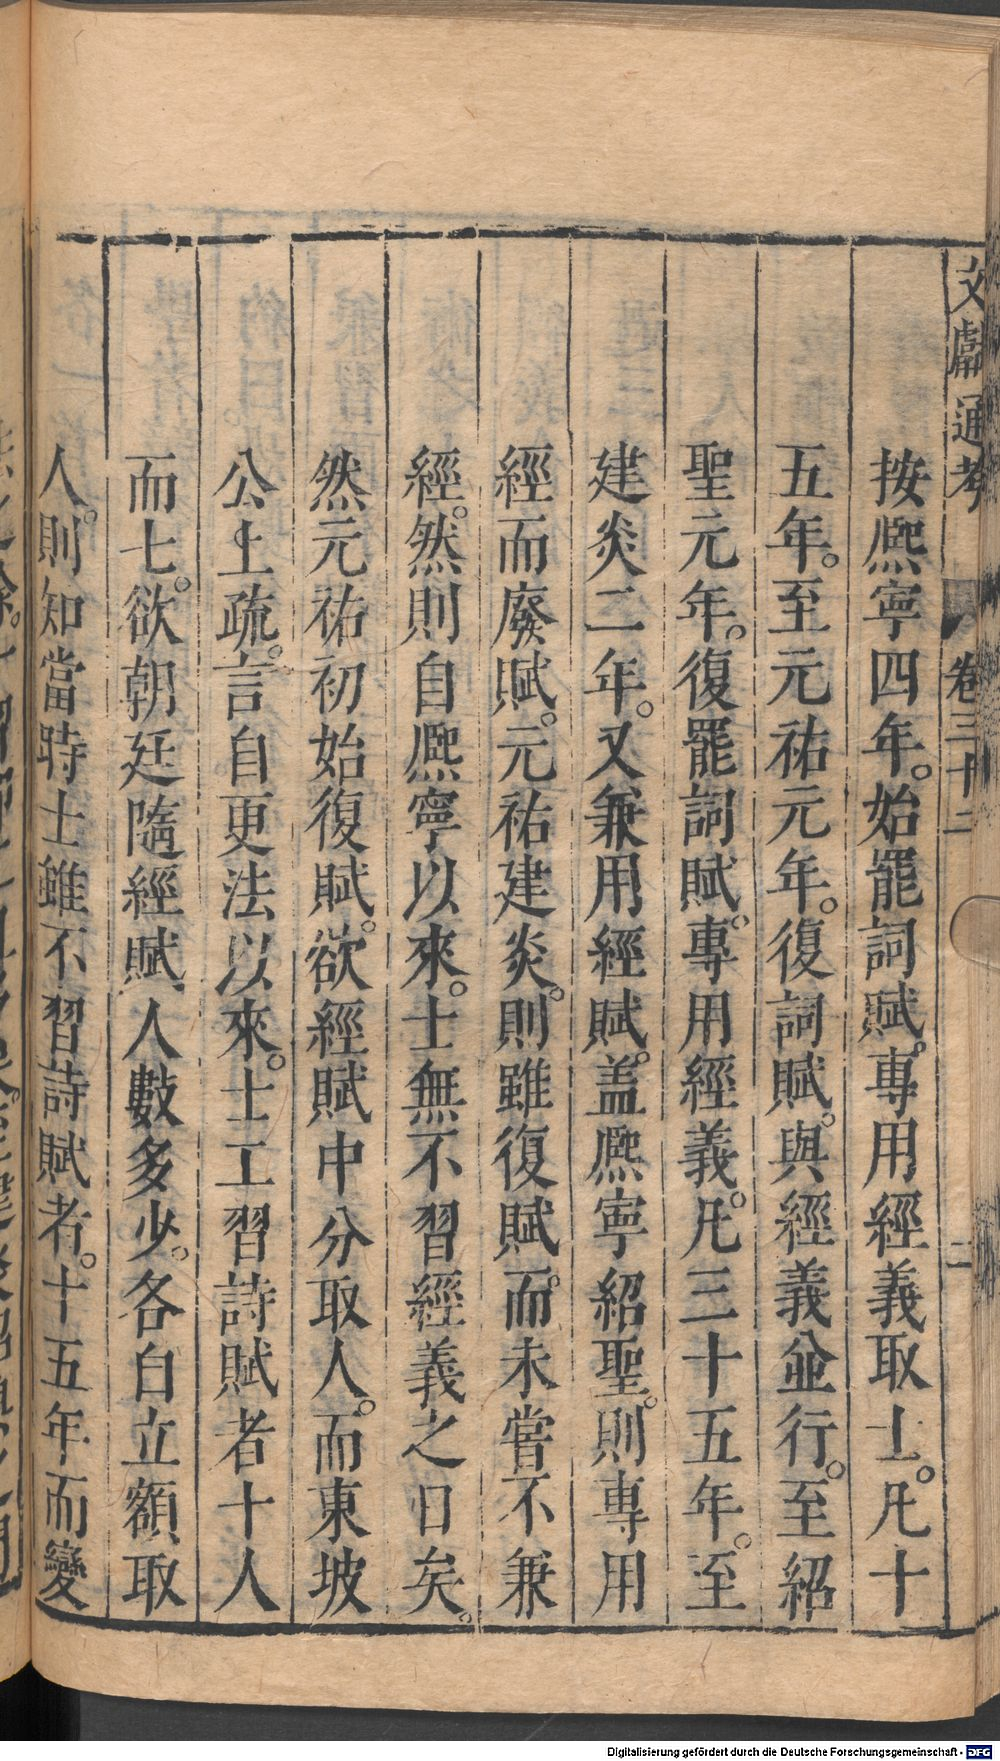 文獻通考 卷三十二 二
按熈寧四年。始罷詞賦。專用經義取士。凡十
五年。至元祐元年。復詞賦。與經義並行。至紹
聖元年。復罷詞賦。專用經義。凡三十五年。至
建炎二年。又兼用經賦。盖熈寧紹聖。則專用
經而廢賦。元祐建炎。則雖復賦。而未嘗不兼
經。然則自熈寧以來。士無不習經義之日矣。
然元祐初始復賦。欲經賦中分取人。而東坡
公上疏。言自更法以來。士工習詩賦者十人
而七。欲朝廷隨經賦人數多少。各自立額取
人。則知當時士雖不習詩賦者。十五年而變
Digitalisierung gefördert durch die Deutsche Forschungsgemeinschaft - DFG